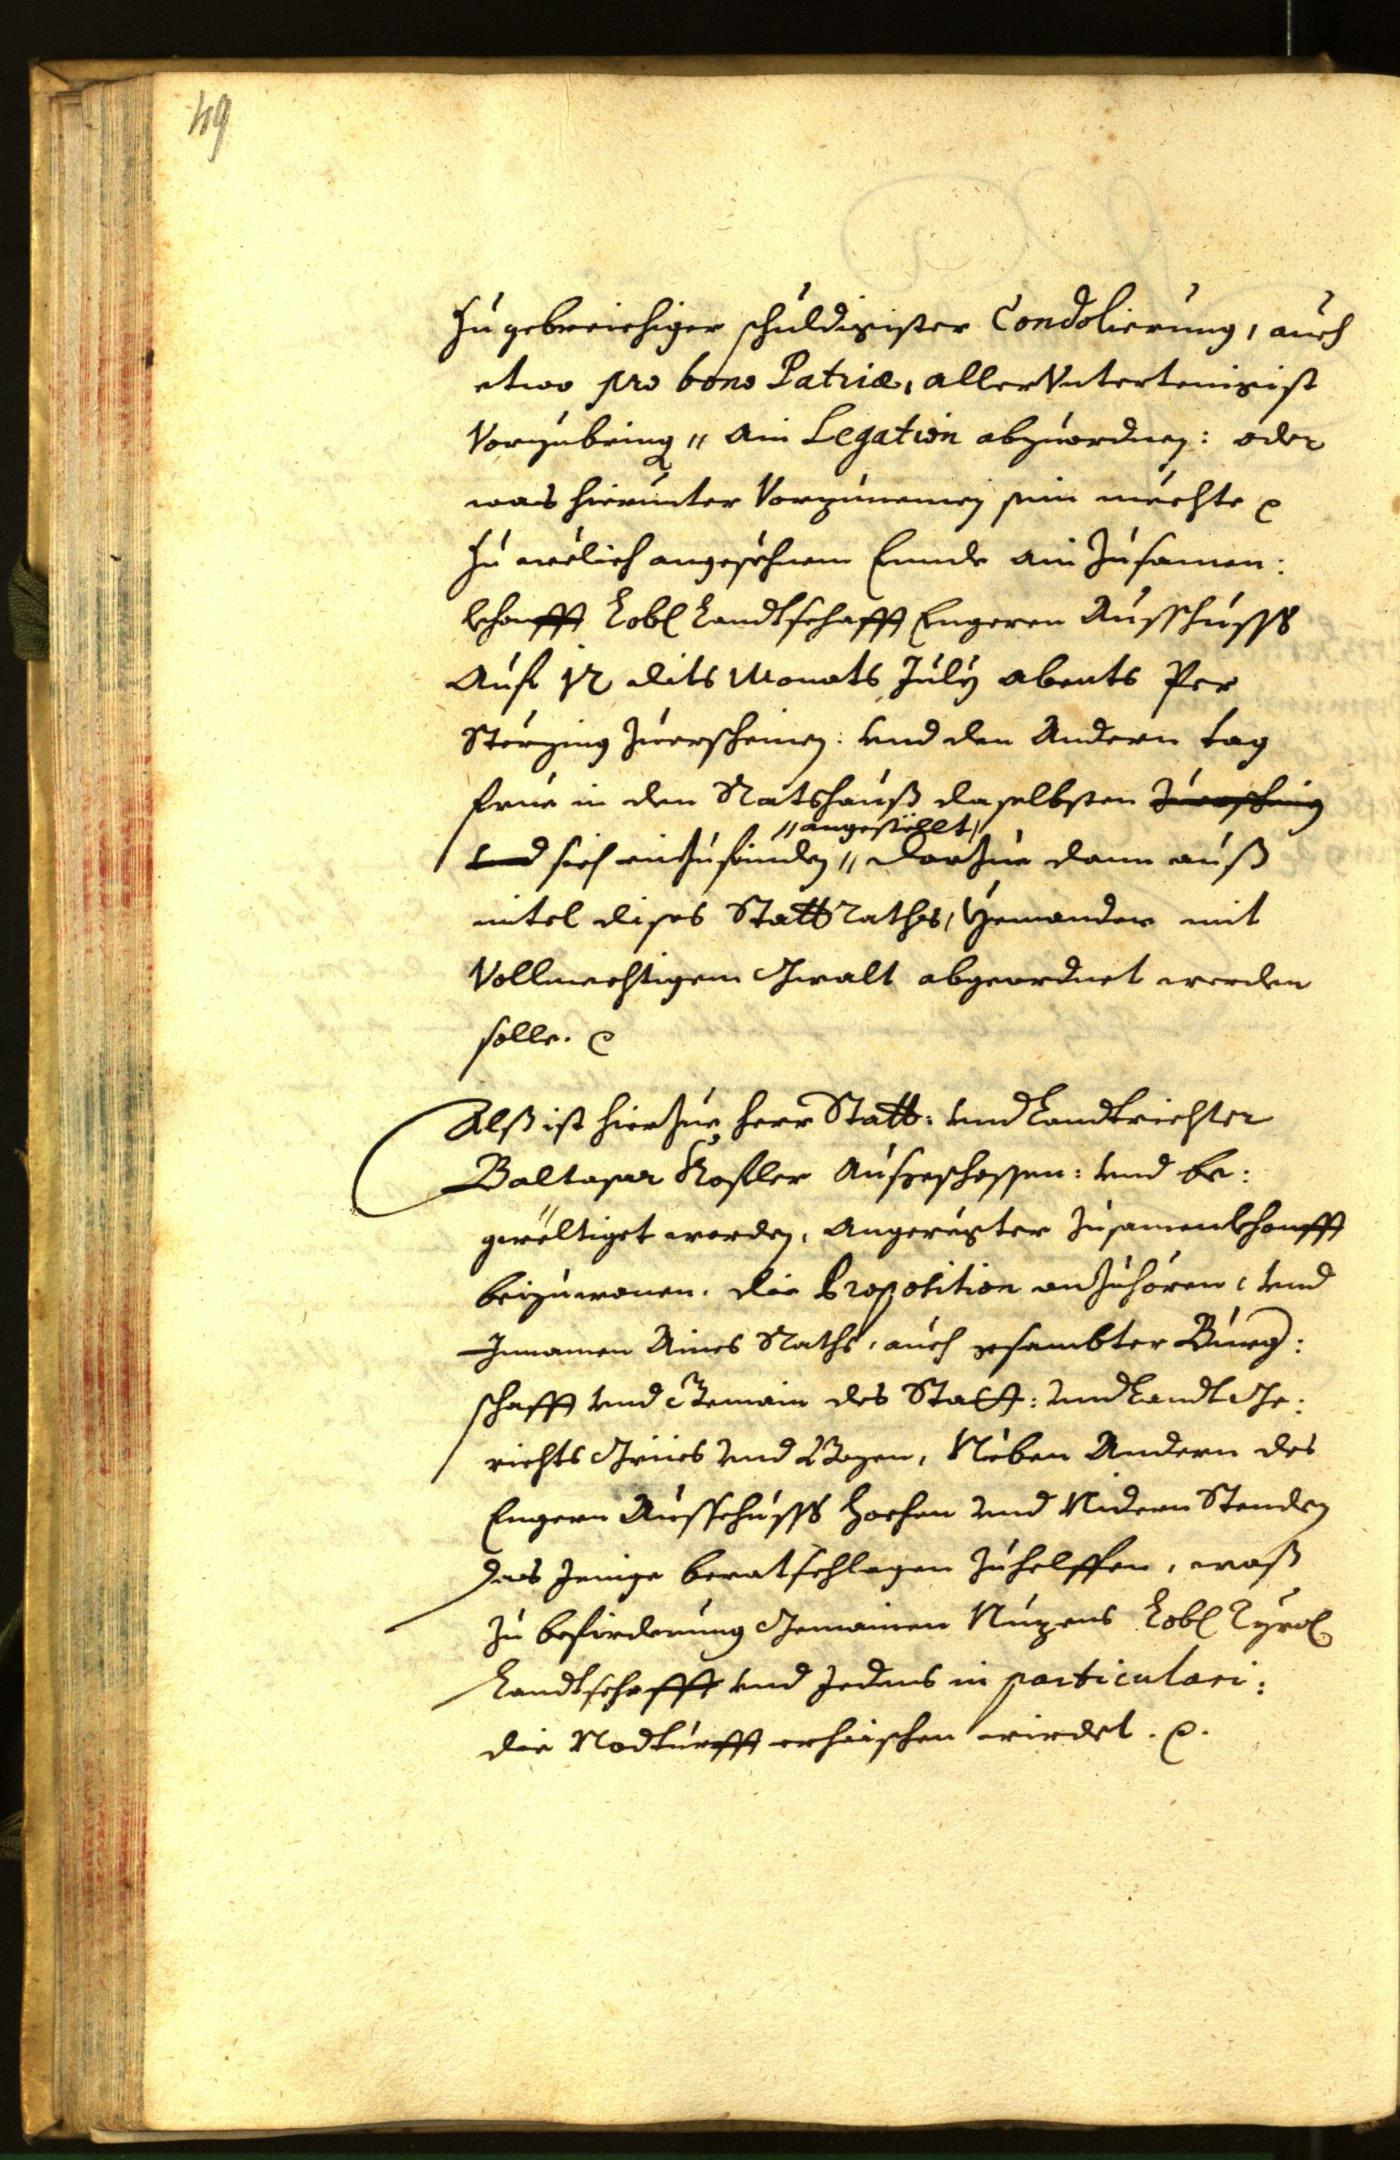 49
Zu gebreichiger schuldigister Condolierung, auch
etwo pro bono Patriæ, aller Vntertenigist
Vorzubring(en) // ain Legation abzuordnen: oder
was hierunter Vorzunemen sein mechte ꝛc
Zu welich angesehnem Ennde ain Zusamen:
khonfft Lobl Landtschafft Engeren Ausschusß
Auf 12 dits Monats July abents Per
Störzing Zuerscheinen: vnd den Andern tag
frue in dem Ratshauß daselbsten Zuerscheinen
vnd sich einzufünden // angestöllt / Darzue dann auß
mitel dises Stattrathes, Yemanden mit
Vollmechtigem Gwalt abgeordnet werden
solle. ꝛc
Alß ist hierzue herr Statt: vnd Landtrichter
Baltasar Rosler Ausgeschossen: vnd be:
gwëltiget worden, Angeregter Zusamenkhonfft
beizuwonen. die Proposition anzuhören, vnd
Innamen Aines Raths, auch gesambter Burg:
schafft vnd Gemain des Statt: vnd Landt Ge:
richts Griies vnd Bozen, Neben Andern des
Engern Ausschusß hochen vnd Nidern Stenden
das Jenige beratschlagen Zuhelffen, waß
Zu befürderung Gemainen Nuzens Lobl Tyrol
Landtschafft vnd Jedens in particulari:
die Nodturfft erhaischen wirdet. ꝛc.